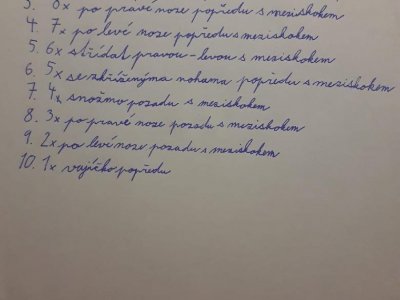 3. 8x po pravé noze popředu s meziskokem
4. 7x po levé noze popředu s meziskokem
5. 6x střídat pravou-levou s meziskokem
6. 5x se zkříženýma nohama popředu s meziskokem
7. 4x snožmo pozadu s meziskokem
8. 3x po pravé noze pozadu s meziskokem
9. 2x po levé noze pozadu s meziskokem
10. 1x vajíčko popředu